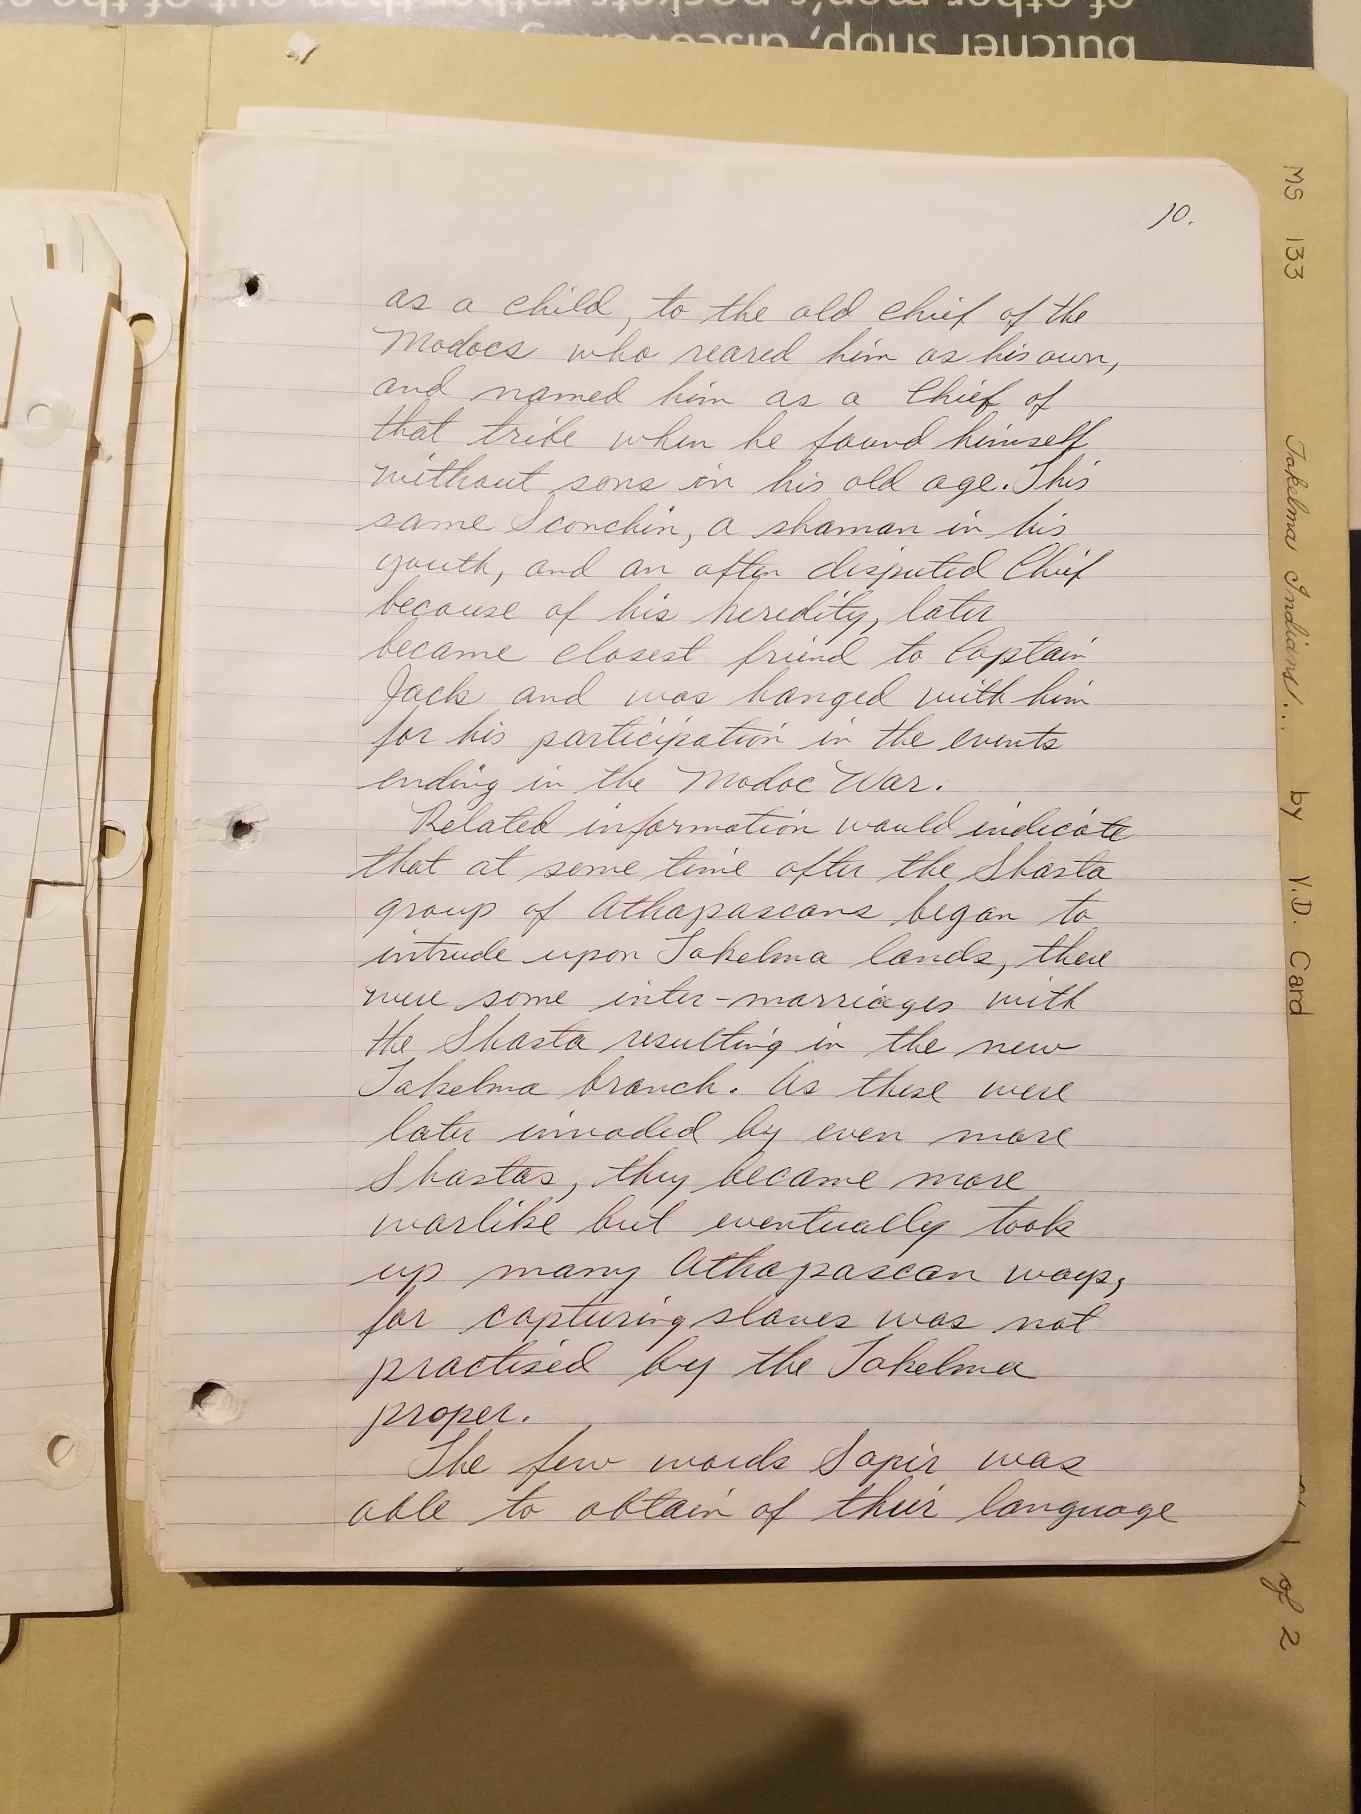 of other men's pockets rather than out of the
butcher shop, discovering
10.
as a child, to the old chief of the
Modocs who reared him as his own,
and named him as a Chief of
that tribe when he found himself
without sons in his old age. This
same Sconchin, a shaman in his
youth, and an often disputed Chief
because of his heredity, later
became closest friend to Captain
Jack and was hanged with him
for his participation in the events
ending in the Modoc War.
Related information would indicate
that at some time after the Shasta
group of Athapascans began to
intrude upon Takelma lands, there
were some inter-marriages with
the Shasta resulting in the new
Takelma branch. As these were
later invaded by even more
Shastas, they became more
warlike but eventually took
up many Athapascan ways,
for capturing slaves was not
practised by the Takelma
proper.
The few words Sapir was
able to obtain of their language
MS 133 Takelma Indians... by V.D. Card
1 of 2